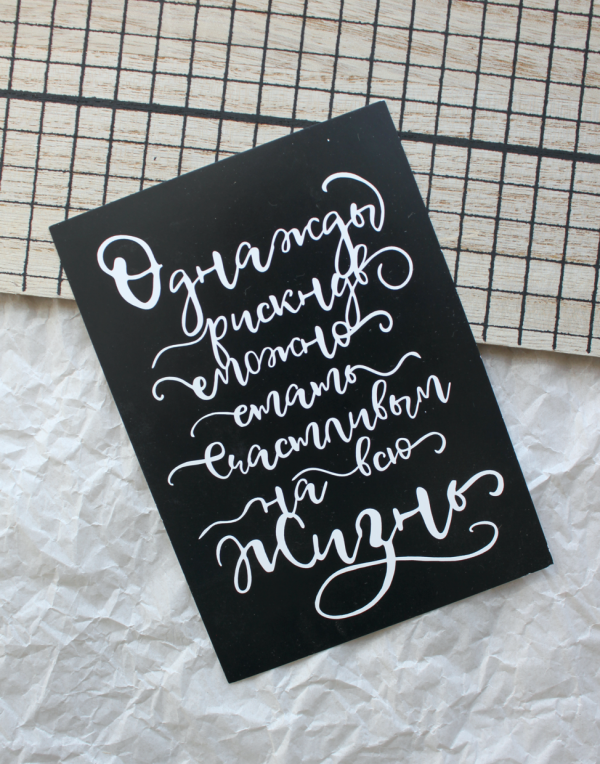 Однажды
рискнув
можно
стать
счастливым
на всю
жизнь